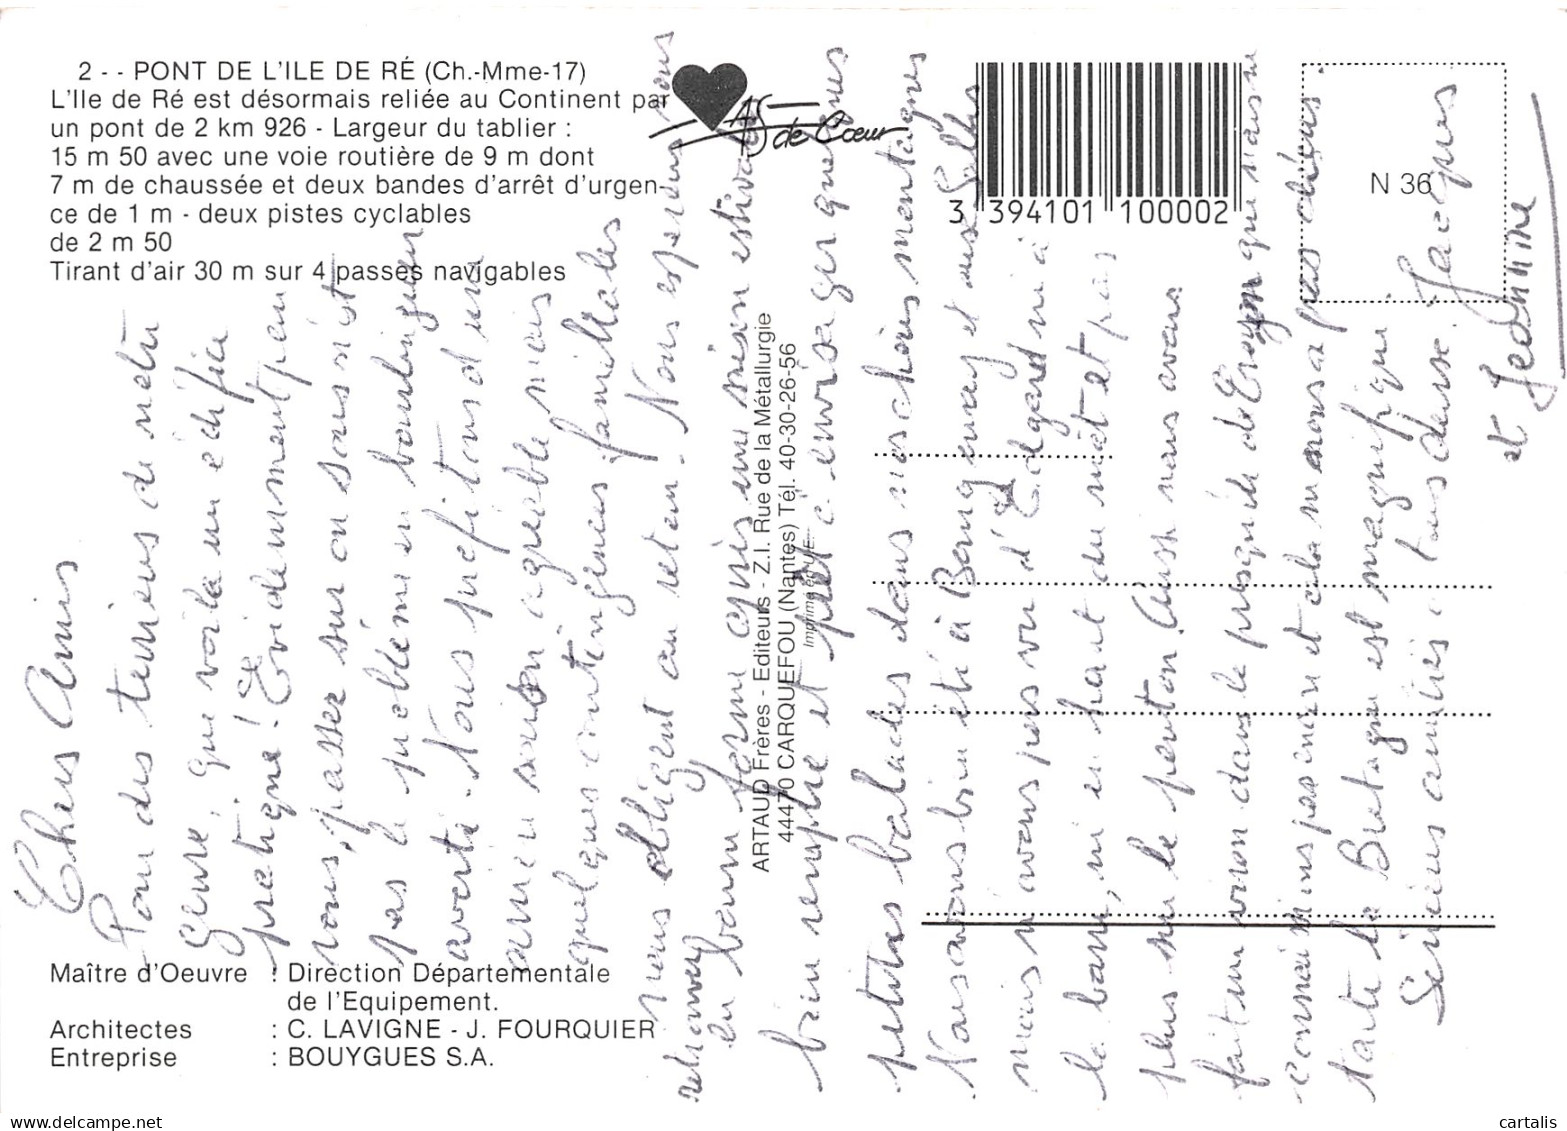 2 - - PONT DE L'ILE DE RÉ (Ch.-Mme-17)
L'Ile de Ré est désormais reliée au Continent par
un pont de 2 km 926 - Largeur du tablier :
15 m 50 avec une voie routière de 9 m dont
7 m de chaussée et deux bandes d'arrêt d'urgen-
ce de 1 m - deux pistes cyclables
de 2 m 50
Tirant d'air 30 m sur 4 passes navigables
Maître d'Oeuvre : Direction Départementale
de l'Equipement.
Architectes : C. LAVIGNE - J. FOURQUIER
Entreprise : BOUYGUES S.A.
AS de Cœur
3 394101 100002
N 36
ARTAUD Frères - Editeurs - Z.I. Rue de la Métallurgie
44470 CARQUEFOU (Nantes) Tél. 40-30-26-56
Imprimé en U.E.
Chers Amis
Pour des terriens de notre
genre, que voilà un édifice
pratique ! Evidemment pour
vous, passer sur ou sous n'est
pas le problème en
averti. Nous profitons d'une
arrière saison agréable mais
quelques contingences familiales
nous obligent au retour. Nous espérons vous
retrouver
en bonne forme après une saison estivale
bien remplie et peut-être envisager quelques
petites balades dans nos chères montagnes
Nous avons bien été à Bernquay et aux Salles
mais n'avons pas vu d'Edgard ni à
la barre, ni en haut du mât et pas
plus sur le ponton. Aussi nous avons
fait un viron dans la presqu'île de Crozon que nous ne
connaissions pas encore et cela nous a plus
toute la Bretagne est magnifique
Sincères amitiés à tous deux. Jacques
et Jeannine